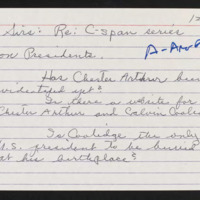 Sirs: Re: C-Span series
on Presidents.
Has Chester Arthur been
videotaped yet?
Is there a website for
Chester Arthur and Calvin Coolidge
Is Coolidge the only
U.S. president to be buried
at his birthplace?